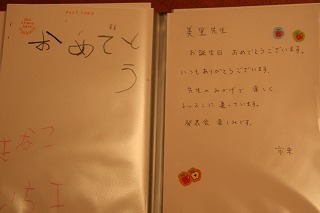 POST CARD
おめでと
う
美里先生
お誕生日 おめでとうございます。
いつもありがとうございます。
先生のおかげで 楽しく
レッスンに 通っています。
発表会 楽しみです。